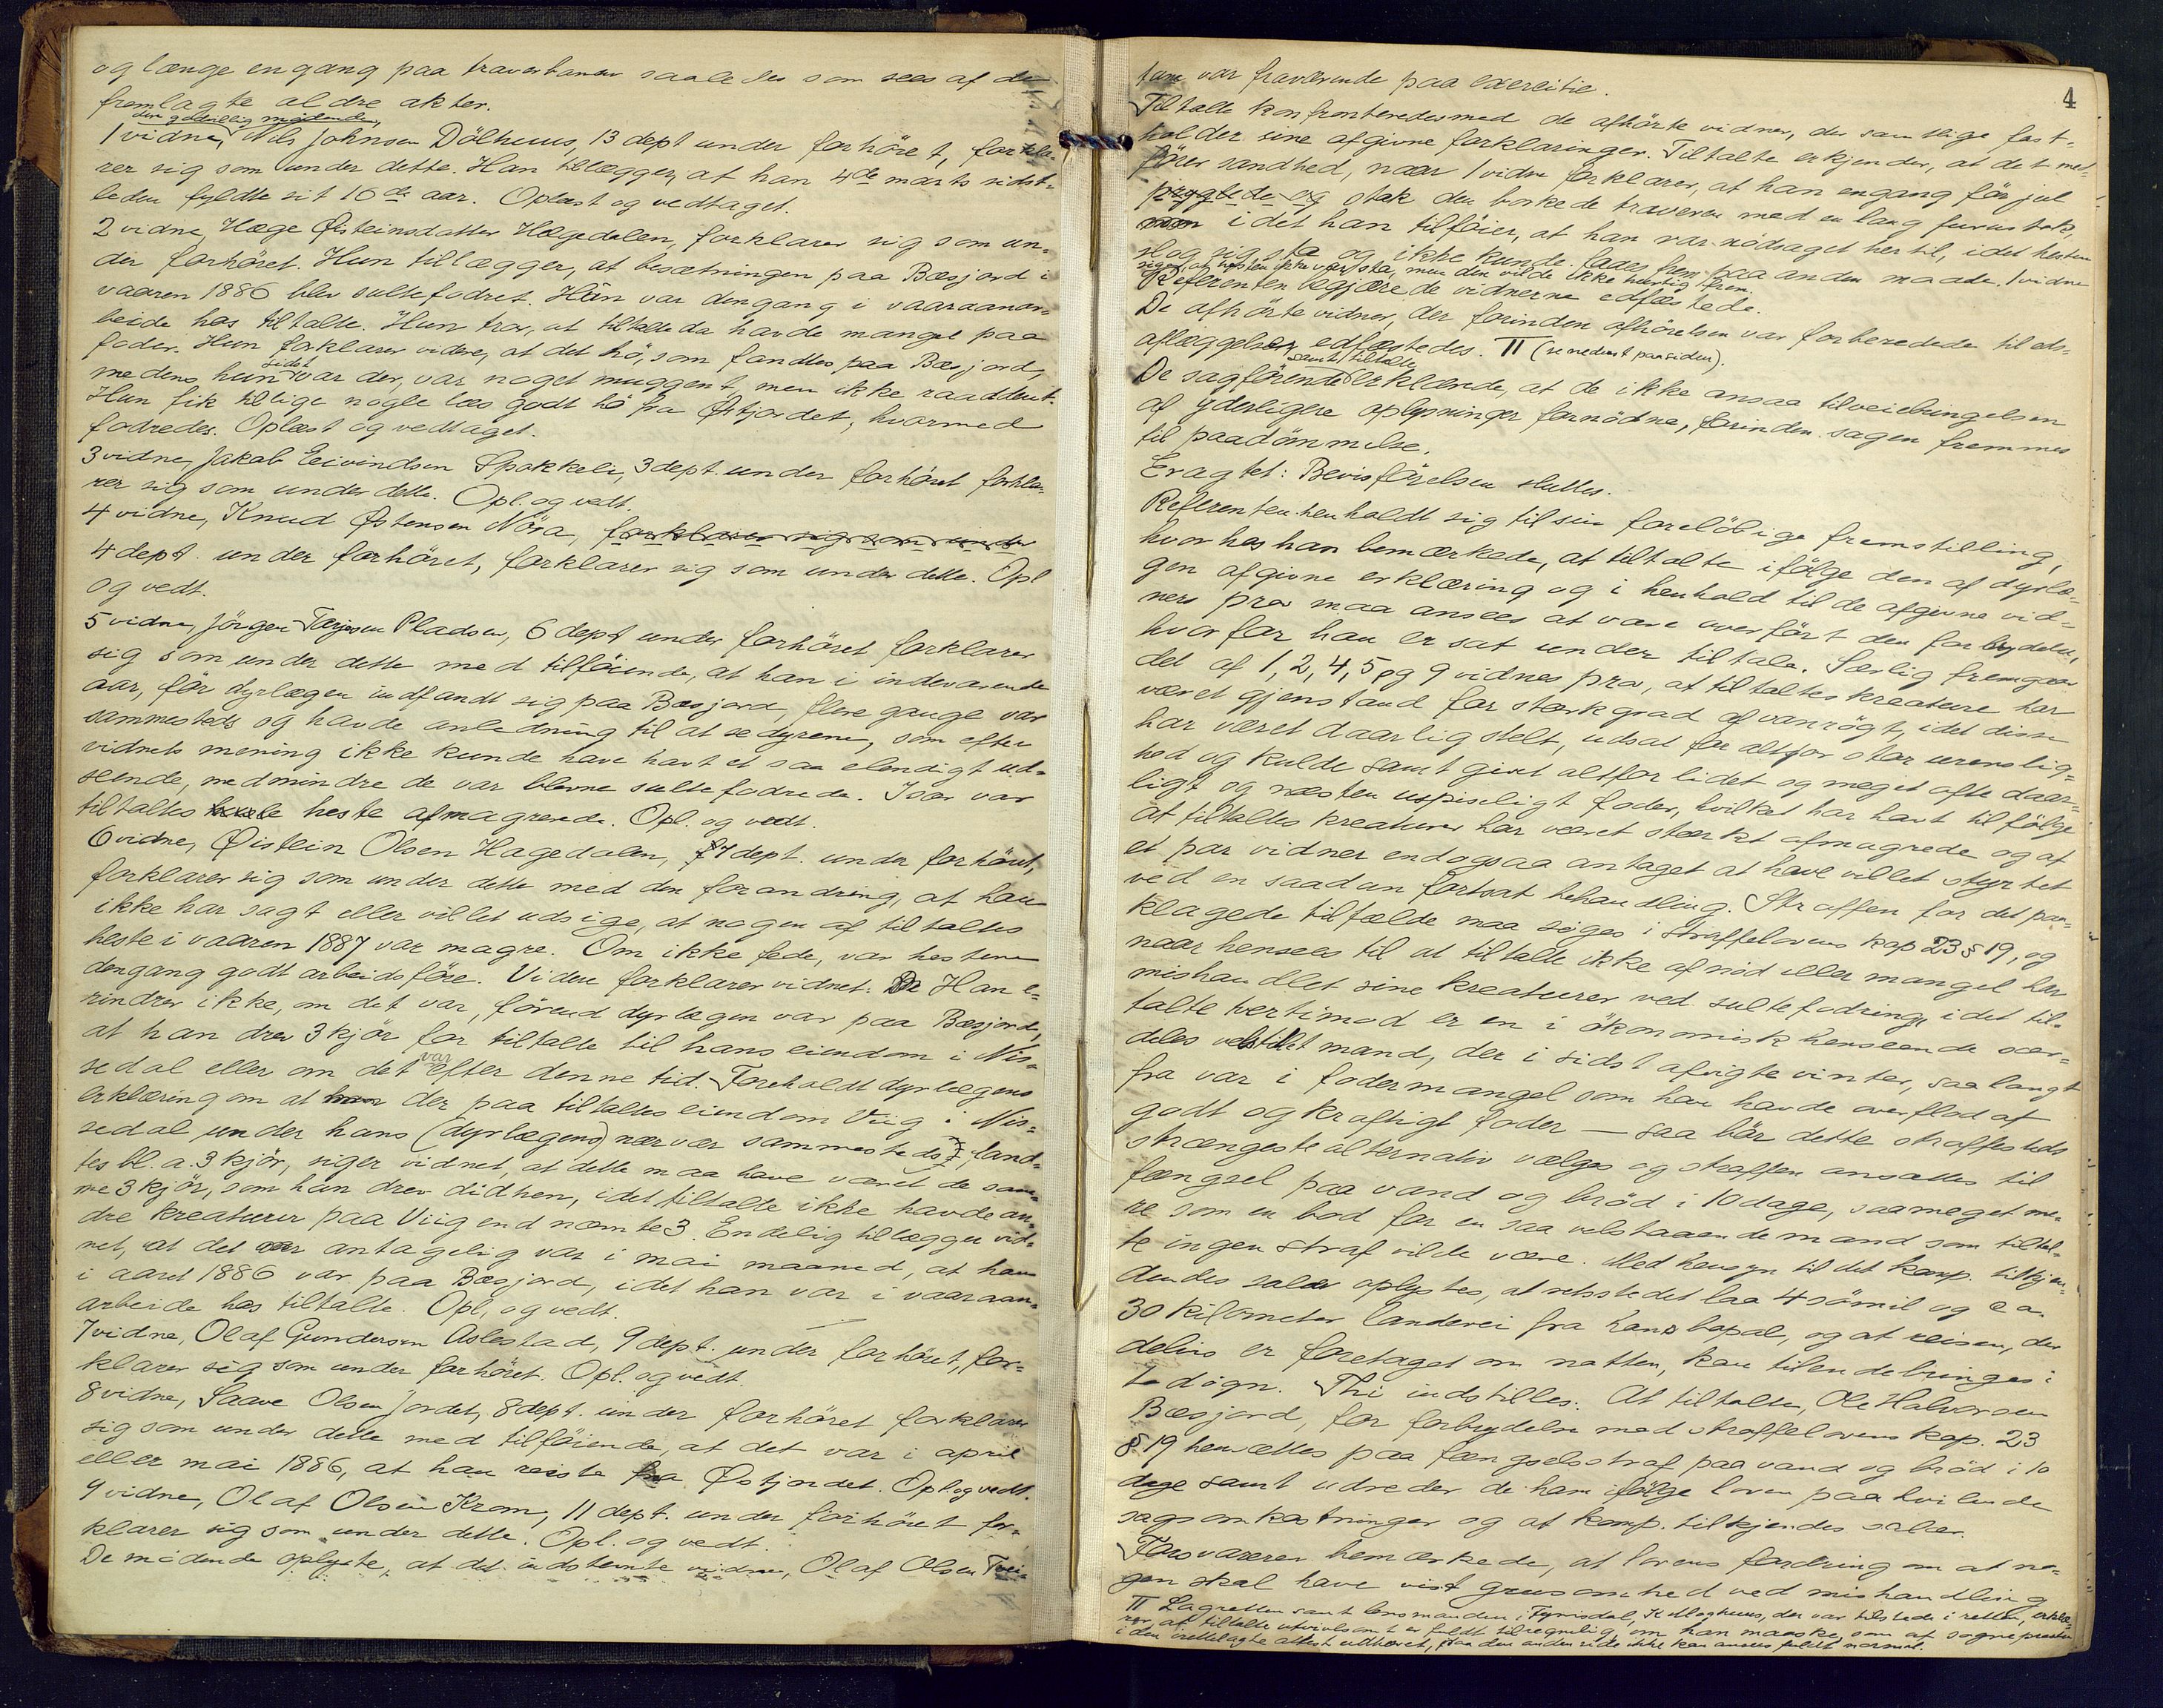 og længe en gang paa traverbanen saaledes som sees af de
fremlagte aldre akter.
den godvillig mødende,
1 vidne, Nils Johnsen Dölhuus, 13 dept under forhöret, forkla-
rer sig som under dette. Han tillægger, at han 4de marts sidst-
leden fyldte sit 16de aar. Oplæst og vedtaget.
2 vidne, Hæge Øisteinsdatter Hægedalen, forklarer sig som un-
der forhöret. Hun tillægger, at besætningen paa Bæsjord i
vaaren 1886 blev sultefodret. Hun var dengang i vaaraanar-
beide hos tiltalte. Hun tror, at tiltalte da havde mangel paa
foder. Hun forklarer videre, at det hö, som fandtes paa Bæsjord,
medens hun sidst var der, var noget muggent, men ikke raaddent.
Hun fik tillige nogle læs godt hö fra Østjordet, hvormed
fodredes. Oplæst og vedtaget.
3 vidne, Jakob Eeivindsen Spokkeli, 3 dept. under forhöret forkla-
rer sig som under dette. Opl. og vedt.
4 vidne, Knud Østensen Nöra, forklarer sig som under
4 dept. under forhöret, forklarer sig som under dette. Opl
og vedt.
5 vidne, Jörgen Tarjesen Pladsen, 6 dept under forhöret forklarer
sig som under dette med tilföiende, at han i indeværende
aar, för dyrlægen indfandt sig paa Bæsjord, flere gange var
sammesteds og havde anledning til at se dyrene, som efter
vidnets mening ikke kunde have havt et saa elendigt ud-
seende, medmindre de var blevne sultefodrede. Ivaar var
tiltaltes heste afmagrede. Opl. og vedt.
6 vidne, Øistein Olsen Hagedalen, 7 dept. under forhöret,
forklarer sig som under dette med den forandring, at han
ikke har sagt eller villet udsige, at nogen af tiltaltes
heste i vaaren 1887 var magre. Om ikke fede, var hestene
dengang godt arbeidsföre. Videre forklarer vidnet: Han e-
rindrer ikke, om det var, förend dyrlægen var paa Bæsjord,
at han drev 3 kjör for tiltalte til hans eiendom i Nis-
sedal eller om det var efter denne tid. Foreholdt dyrlægens
erklæring om at der paa tiltaltes eiendom Viig i Nis-
sedal under hans (dyrlægens) nærvær sammesteds, fand-
tes bl. a. 3 kjör, siger vidnet, at dette maa have været de sam-
me 3 kjör, som han drev didhen, idet tiltalte ikke havde an-
dre kreaturer paa Viig end nævnte 3. Endelig tillægger vid-
net, at det antagelig var i mai maaned, at han
i aaret 1886 var paa Bæsjord, idet han var i vaaraan-
arbeide hos tiltalte. Opl. og vedt.
7 vidne, Olaf Gundersen Aslestad, 9 dept. under forhöret, for-
klarer sig som under forhöret. Opl. og vedt.
8 vidne, Saave Olsen Jordet, 8 dept. under forhöret forklarer
sig som under dette med tilföiende, at det var i april
eller mai 1886, at han reiste fra Østjordet. Opl. og vedt.
9 vidne, Olaf Olsen Krom, 11 dept. under forhöret for-
klarer sig som under dette. Opl. og vedt.
De mödende oplyste, at det indstevnte vidne, Olaf Olsen Tvei-
4
tane var fraværende paa exercitie.
Tiltalte konfronteredes med de afhörte vidner, der samtlige fast-
holder sine afgivne forklaringer. Tiltalte erkjender, at det med-
förer sandhed, naar 1 vidne forklarer, at han engang för jul
og stak den borkede traveren med en lang furustok,
idet han tilföier, at han var nödsaget hertil, idet hesten
slog sig sta og ikke kunde faaes frem paa anden maade. 1 vidne
siger, at hesten ikke var sta, men den vilde ikke hurtig frem.
Referenten begjærede vidnerne edfæstede.
De afhörte vidner, der forinden afhörelsen var forberedede til eds-
aflæggelsen edfæstedes. TT (se nederst paa siden).
De sagförende samt tiltalte erklærede, at de ikke ansaa tilveiebringelsen
af yderligere oplysninger fornödne, forinden sagen fremmes
til paadömmelse.
Eragtet: Bevisförelsen sluttes.
Referenten henholdt sig til sin forelöbige fremstilling,
hvorhos han bemærkede, at tiltalte ifölge den af dyrlæ-
gen afgivne erklæring og i henhold til de afgivne vid-
ners prov maa ansees at være overfört den forbrydelse,
hvorfor han er sat under tiltale. Særlig fremgaar
det af 1, 2, 4, 5 og 9 vidnes prov, at tiltaltes kreature har
været gjenstand for stærk grad af vanrögt, idet disse
har været daarlig stelt, udsat for altfor stor urenslig-
hed og kulde samt givet altfor lidet og meget ofte daar-
ligt og næsten uspiseligt foder, hvilket har havt tilfölge
at tiltaltes kreaturer har været stærkt afmagrede og af
et par vidner endogsaa antaget at have villet styrtet
ved en saadan fortsat behandling. Straffen for det paa-
klagede tilfælde maa söges i straffelovens kap 23 § 19, og
naar hensees til at tiltalte ikke af nöd eller mangel har
mishandlet sine kreaturer ved sultefodring, idet til-
talte tvertimod er en i ökonomisk henseende sær-
deles velstillet mand, der i sidst afvigte vinter, saa langt
fra var i fodermangel som han havde overflod af
godt og kraftigt foder — saa bör dette straffesteds
strængeste alternativ vælges og straffen ansættes til
fængsel paa vand og bröd i 10 dage, saameget me-
re som en bod for en saa velstaaende mand som tiltal-
te ingen straf vilde være. Med hensyn til det komp. tilkjen-
dendes salær oplystes, at retsstedet laa 4 sömil og ca.
30 kilometer landevei fra hans bopæl, og at reisen, der
delvis er foretaget om natten, kan tilendebringes i
to dögn. Thi indstilles: At tiltalte, Ole Halvorsen
Bæsjord, for forbrydelse mod straffelovens kap. 23
§ 19 hensættes paa fængselsstraf paa vand og bröd i 10
dage samt udreder de ham ifölge loven paahvilende
sagsomkostninger og at komp. tilkjendes salær.
Forsvareren bemærkede, at lovens fordring om at no-
gen skal have vist grusomhed ved mishandling
TT Lagretten samt lensmanden i Fyrrisdal, K. Moghuus, der var tilstede i retten, erklæ-
rer, at tiltalte utvivlsomt er fuldt tilregnelig, om han maaske, som af sognepresten
i den irettelagte attest udtheret, paa den anden side ikke kan ansees fuldt normal.